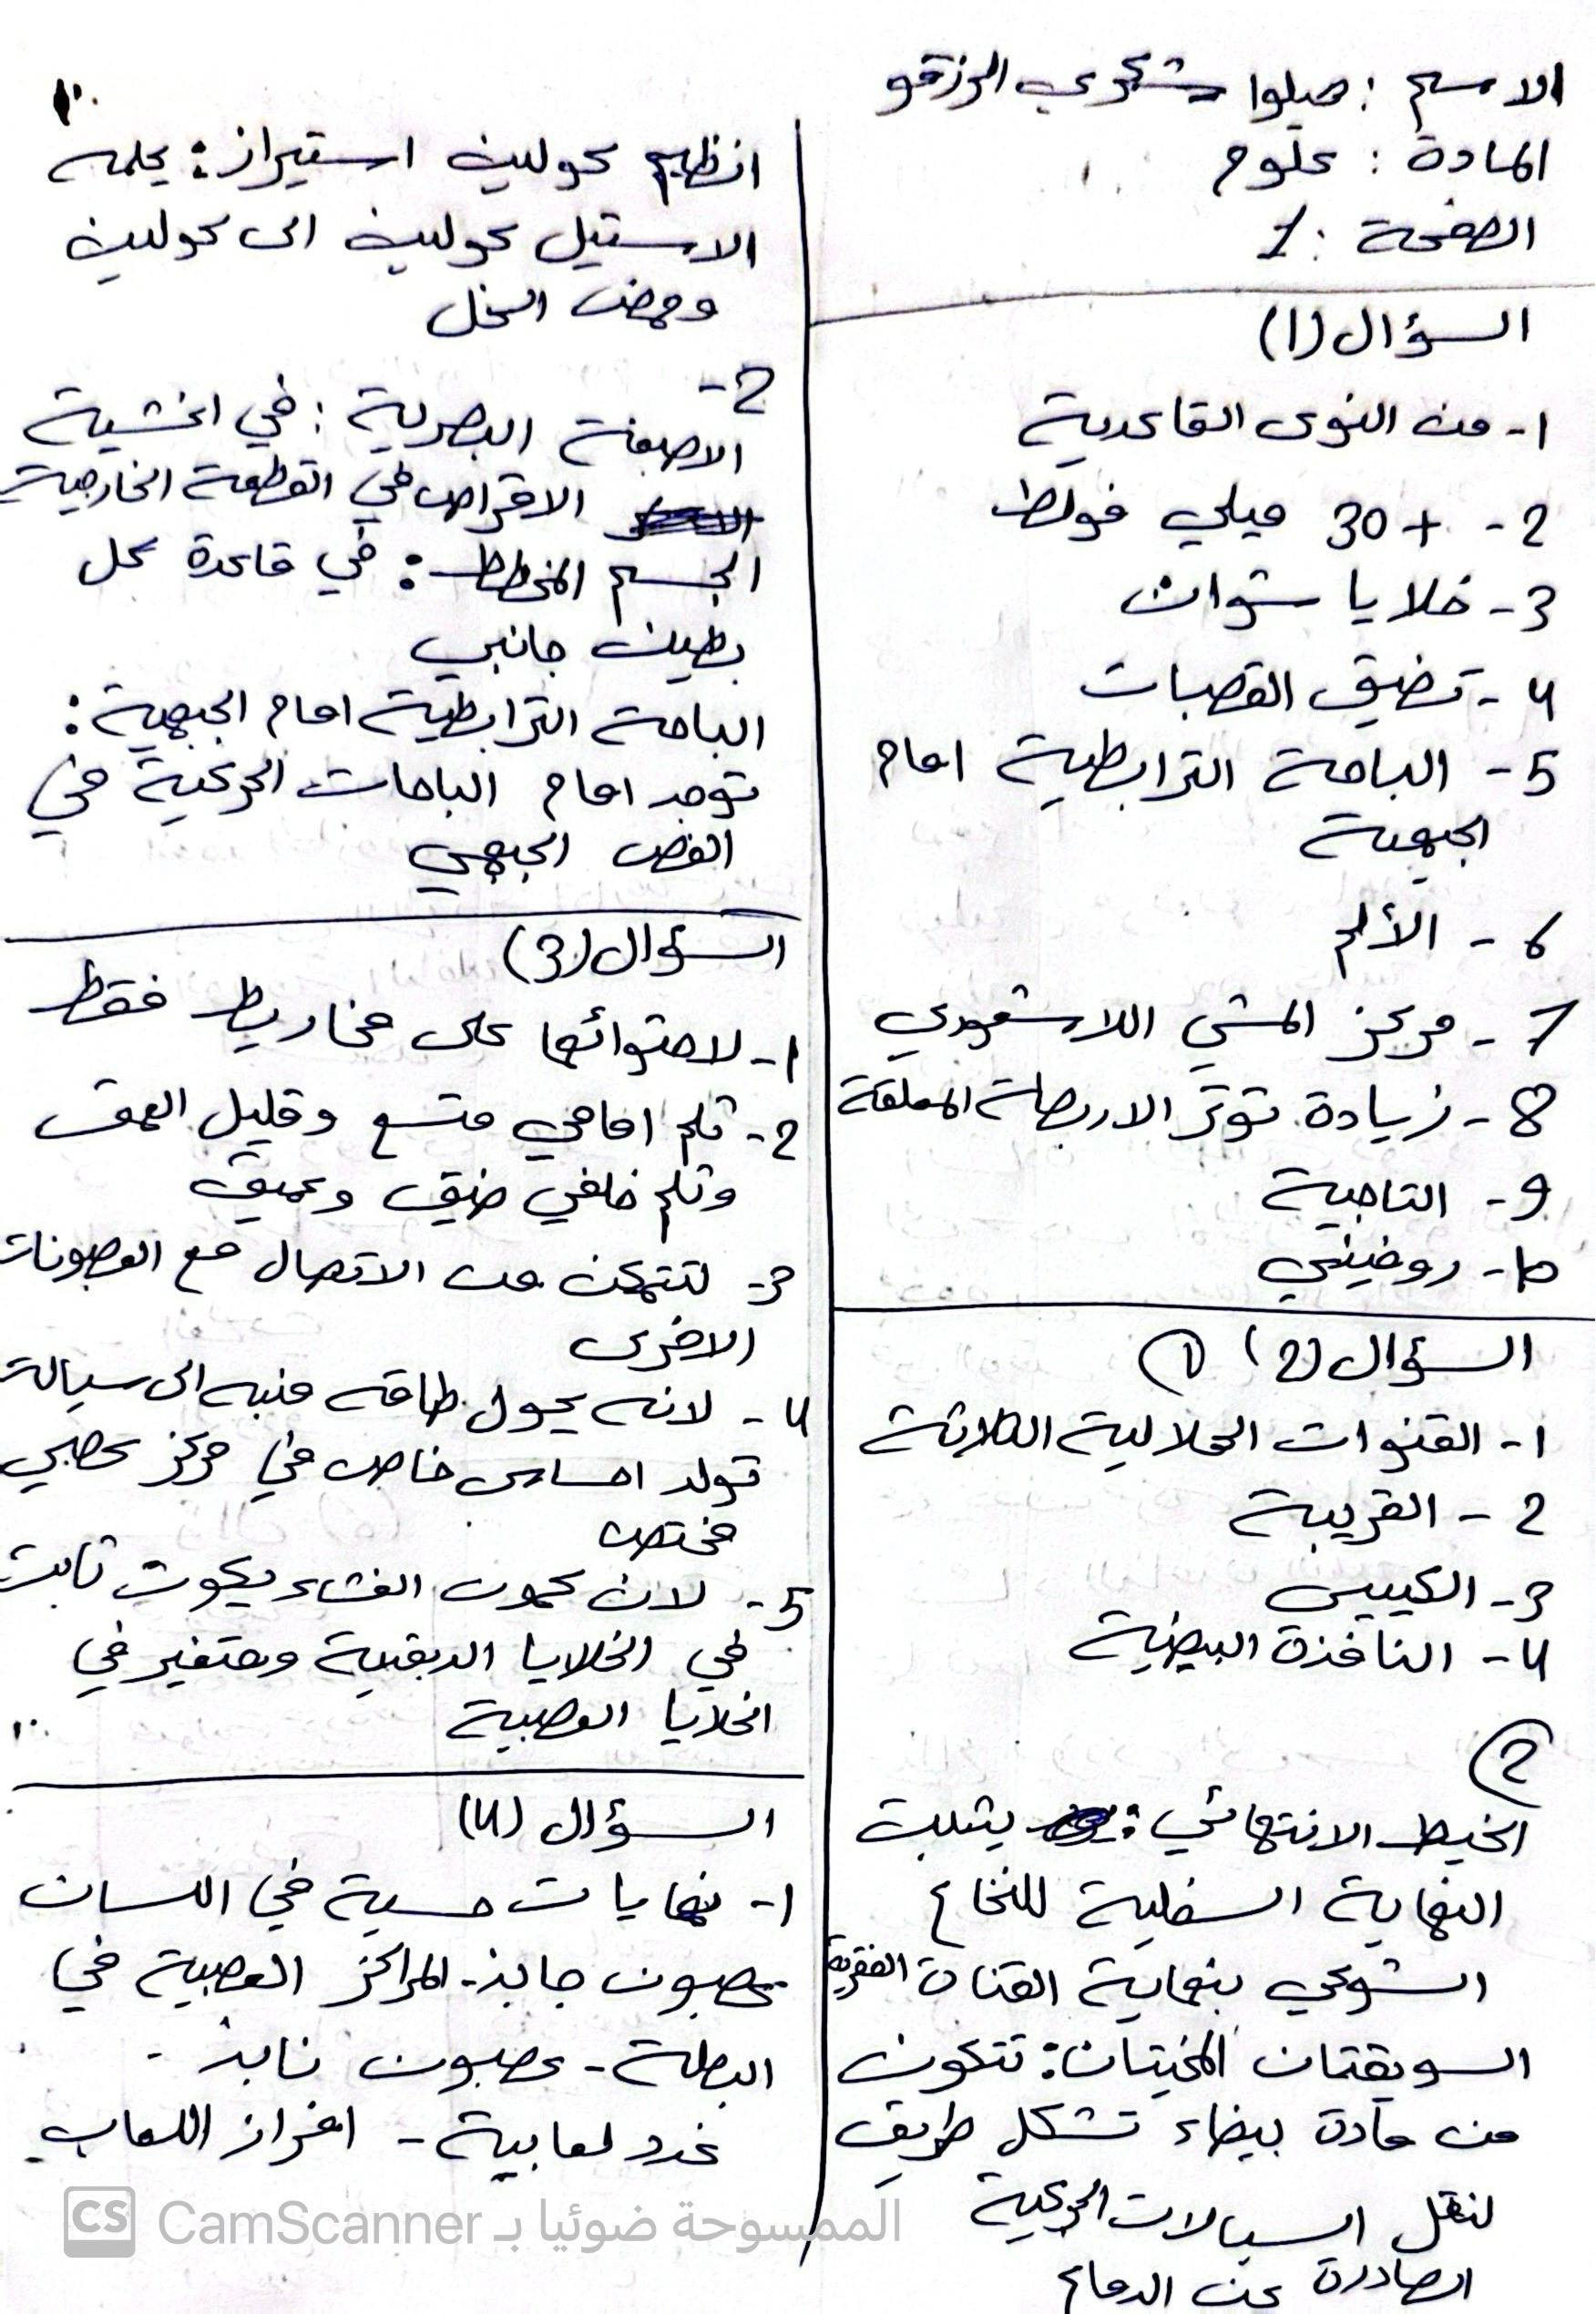 الاسم : هيلوا شكري الرزقو
المادة : علوم
الصفحة : 1
السؤال (1)
1- من النوى القاعدية
2- +30 ميلي فولط
3- خلايا شوان
4- تضيق القصبات
5- الباحة الترابطية امام
الجبهية
6- الألم
7- مركز المشي اللاشعوري
8- زيادة توتر الاربطة المعلقة
9- التاجية
10- روفيني
السؤال (2) ①
1- القنوات الهلالية الثلاثة
2- القريبة
3- الكييس
4- النافذة البيضية
②
الخيط الانتهائي : يثبت
النهاية السفلية للنخاع
الشوكي بنهاية القناة الفقرية
السويقتان المخيتان: تتكون
من مادة بيضاء تشكل طريق
لنقل السيالات الحركية
الصادرة عن الدماغ
انظيم كولين استيراز: يحلمه
الاستيل كولين الى كولين
وحمض الخل
2-
الاصبغة البصرية : في اغشية
الاقراص في القطعة الخارجية
الجسم المخطط: في قاعدة كل
بطين جانبي
الباحة الترابطية امام الجبهية:
توجد امام الباحات الحركية في
الفص الجبهي
السؤال (3)
1- لاحتوائها على مخاريط فقط
2- ثلم امامي متسع وقليل العمق
وثلم خلفي ضيق وعميق
3- لتتمكن من الاتصال مع العصبونات
الاخرى
4- لانه يحول طاقه منبه الى سيالة
تولد احساس خاص في مركز عصبي
مختص
5- لان كمون الغشاء يكون ثابت
في الخلايا الدبقية ومتغير في
الخلايا العصبية
السؤال (4)
1- نهايات حسية في اللسان
عصبون جابذ - المراكز العصبية في
البصلة - عصبون نابذ -
غدد لعابية - افراز اللعاب
CS الممسوحة ضوئيا بـ CamScanner